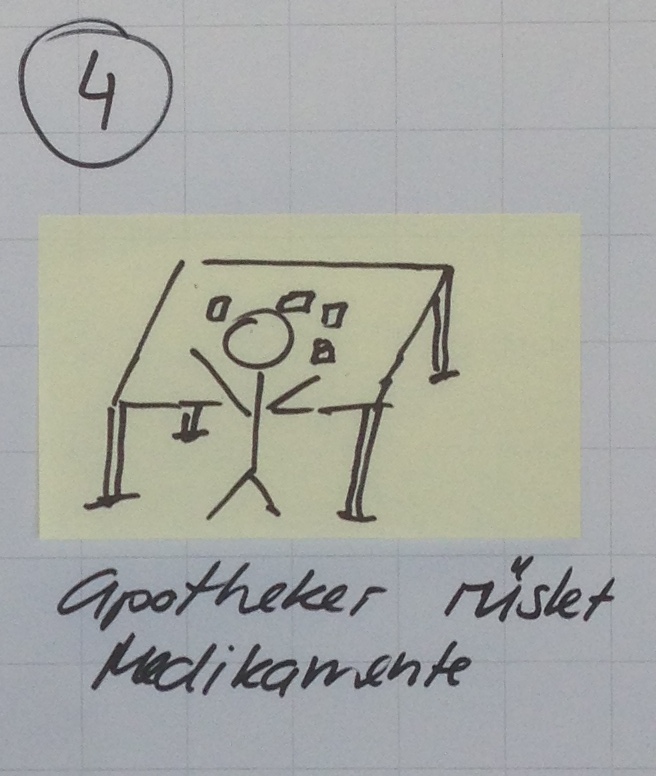 4
Apotheker rüstet
Medikamente